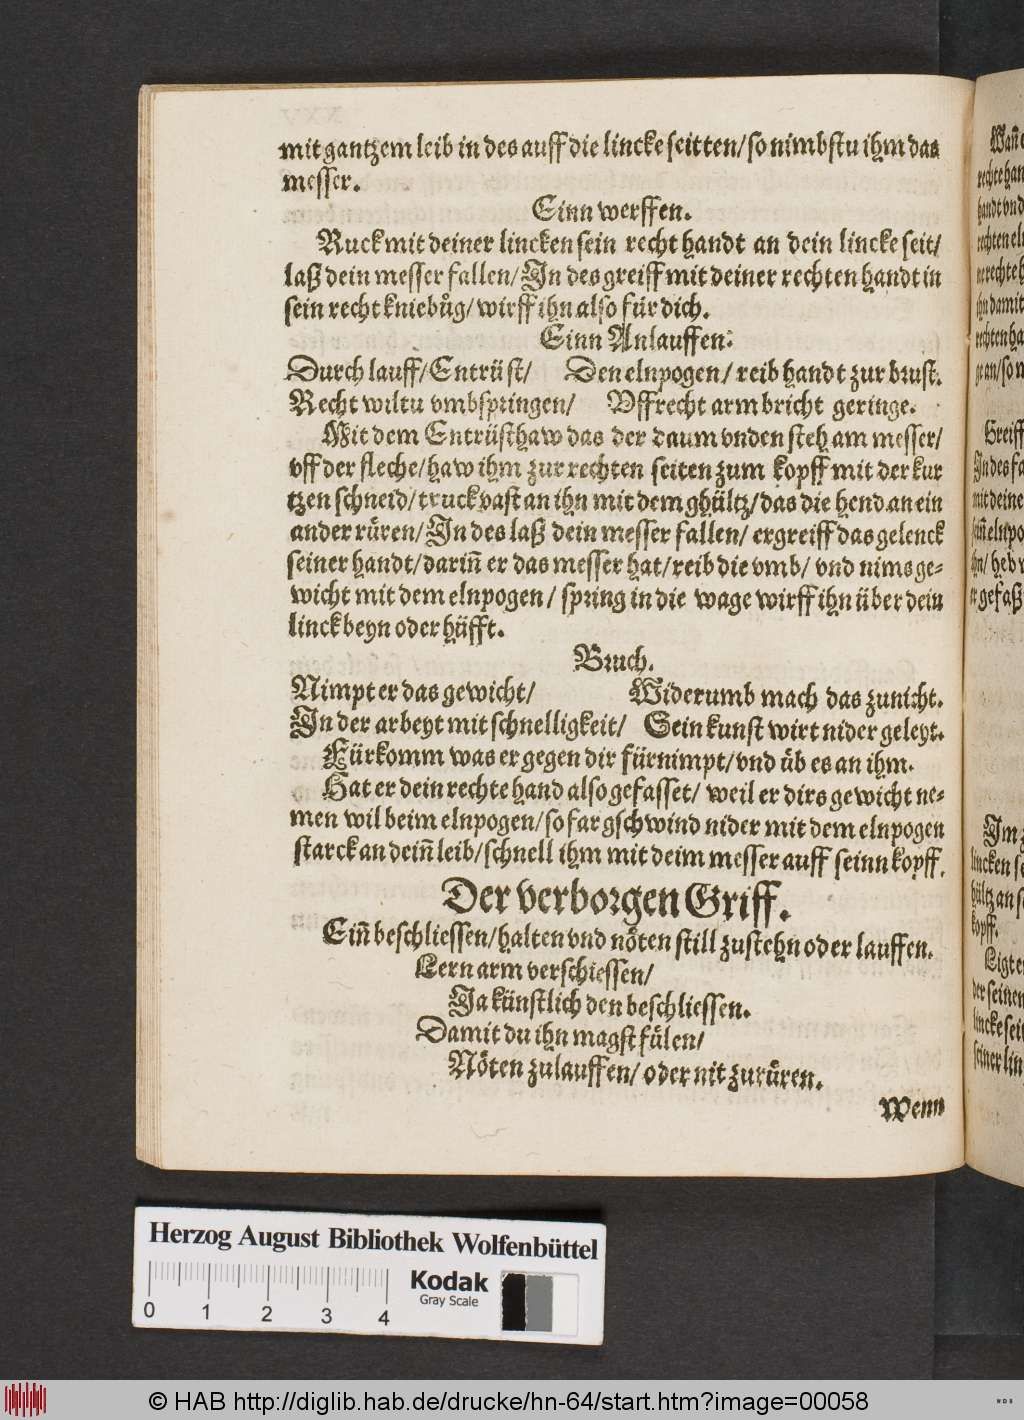 mit gantzem leib in des auff die lincke seitten/ so nimbstu ihm das
messer.
Einn werffen.
Ruck mit deiner lincken sein recht handt an dein lincke seit/
laß dein messer fallen/ In des greiff mit deiner rechten handt in
sein recht kniebůg/ wirff ihn also für dich.
Einn Anlauffen.
Durch lauff/ Entrüst/ Den elnpogen/ reib handt zur brust.
Recht wiltu vmbspringen/ Vffrecht arm bricht geringe.
Mit dem Entrüsthaw das der daum vnden steh am messer/
vff der fleche/ haw ihm zur rechten seiten zum kopff mit der kur
tzen schneid/ truck vast an ihn mit dem ghültz/ das die hend an ein
ander rüren/ In des laß dein messer fallen/ ergreiff das gelenck
seiner handt/ dariñ er das messer hat/ reib die vmb/ vnd nims ge-
wicht mit dem elnpogen/ spring in die wage wirff ihn über dein
linck beyn oder hüfft.
Bruch.
Nimpt er das gewicht/ Widerumb mach das zunicht.
In der arbeyt mit schnelligkeit/ Sein kunst wirt nider geleyt.
Fürkomm was er gegen dir fürnimpt/ vnd üb es an ihm.
Hat er dein rechte hand also gefasset/ weil er dirs gewicht ne-
men wil beim elnpogen/ so far gschwind nider mit dem elnpogen
starck an deiñ leib/ schnell ihm mit deim messer auff seinn kopff.
Der verborgen Griff.
Eiñ beschliessen/ halten vnd nöten still zustehn oder lauffen.
Lern arm verschiessen/
Ja künstlich den beschliessen.
Damit du ihn magst fülen/
Nöten zulauffen/ oder nit zurüren.
Wenn
Wañ
rechte han
handt vnd
rechten eln
ne rechte h
ihn damit
rechten ha
ge an/ so n
Greiff
In des fa
mit deine
ihn/ heb v
er gefaß
Im
lincken se
hültz an s
kopff.
Ligt er
der seinen
lincke seit
seiner lin
Herzog August Bibliothek Wolfenbüttel
Kodak
Gray Scale
0 1 2 3 4
© HAB http://diglib.hab.de/drucke/hn-64/start.htm?image=00058